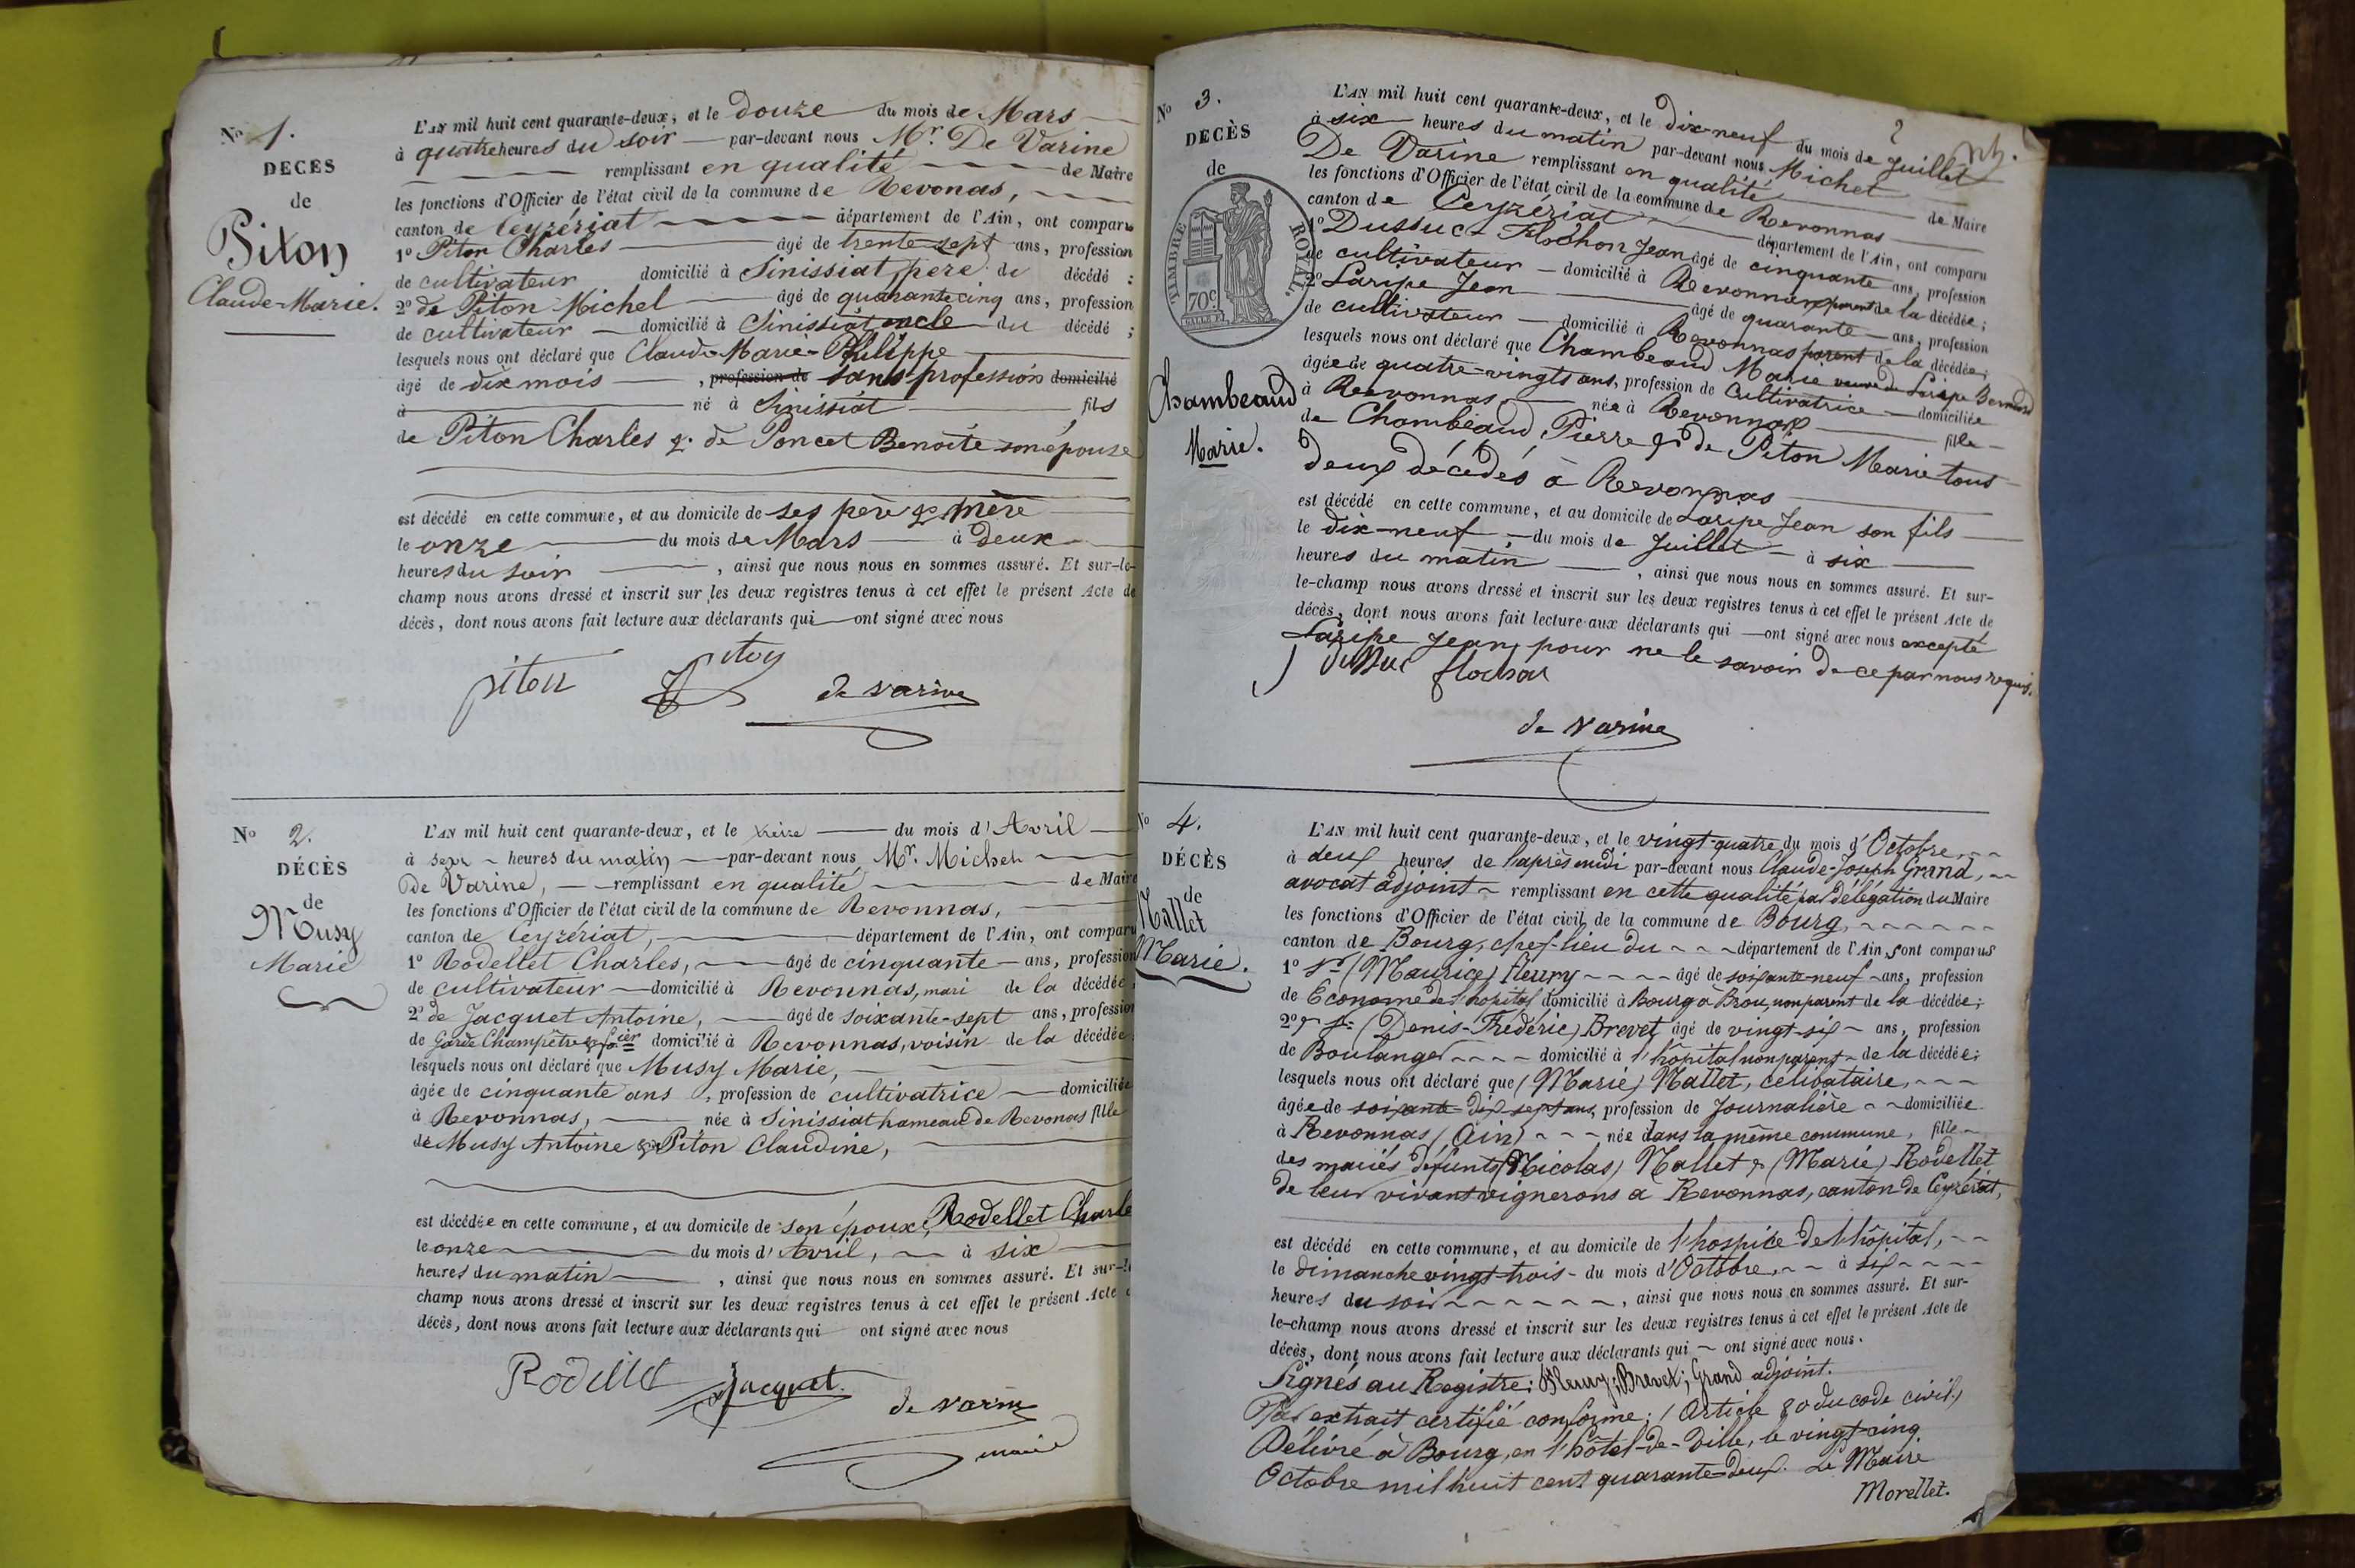 No 1.
DÉCÈS
de
Piton
Claude-Marie.
L'AN mil huit cent quarante-deux, et le douze du mois de Mars
à quatre heures du soir par-devant nous Mr. De Varine
remplissant en qualité de Maire
les fonctions d'Officier de l'état civil de la commune de Revonas,
canton de Ceyzériat département de l'Ain, ont comparu
1o Piton Charles âgé de trente-sept ans, profession
de cultivateur domicilié à Sinissiat, père du décédé ;
2o de Piton Michel âgé de quarante cinq ans, profession
de cultivateur domicilié à Sinissiat oncle du décédé ;
lesquels nous ont déclaré que Claude-Marie-Philippe
âgé de dix mois, profession de sans profession domicilié
à né à Sinissiat fils
de Piton Charles & de Poncet Benoite son épouse
est décédé en cette commune, et au domicile de ses père & mère
le onze du mois de Mars à deux
heures du soir, ainsi que nous nous en sommes assuré. Et sur-le-
champ nous avons dressé et inscrit sur les deux registres tenus à cet effet le présent Acte de
décès, dont nous avons fait lecture aux déclarants qui ont signé avec nous
piton Piton de varine
No 2.
DÉCÈS
de
Musy
Marie
L'AN mil huit cent quarante-deux, et le treize du mois d'Avril
à sept heures du matin par-devant nous Mr. Michel
de Varine, remplissant en qualité de Maire
les fonctions d'Officier de l'état civil de la commune de Revonnas,
canton de Ceyzériat, département de l'Ain, ont comparu
1o Rodellet Charles, âgé de cinquante ans, profession
de cultivateur domicilié à Revonnas, mari de la décédée
2o de Jacquet Antoine, âgé de soixante-sept ans, profession
de Garde Champêtre & forier domicilié à Revonnas, voisin de la décédée
lesquels nous ont déclaré que Musy Marie,
âgée de cinquante ans, profession de cultivatrice domiciliée
à Revonnas, née à Sinissiat hameau de Revonas fille
de Musy Antoine & Piton Claudine,
est décédée en cette commune, et au domicile de son époux, Rodellet Charle
le onze du mois d'Avril, à six
heures du matin, ainsi que nous nous en sommes assuré. Et sur-le
champ nous avons dressé et inscrit sur les deux registres tenus à cet effet le présent Acte
décès, dont nous avons fait lecture aux déclarants qui ont signé avec nous
Rodellet Jacquet. de varine
maire
2
No 3.
DÉCÈS
de
TIMBRE ROYAL.
70c
Chambeaud
Marie.
L'AN mil huit cent quarante-deux, et le dix-neuf du mois de Juillet
à six heures du matin par-devant nous Michet
De Varine remplissant en qualité de Maire
les fonctions d'Officier de l'état civil de la commune de Revonnas
canton de Ceyzériat département de l'Ain, ont comparu
1o Dussuc Flochon Jean âgé de cinquante ans, profession
de cultivateur domicilié à Revonnas parent de la décédée ;
2o Laripe Jean âgé de quarante ans, profession
de cultivateur domicilié à Revonnas parent de la décédée ;
lesquels nous ont déclaré que Chambeaud Marie veuve de Laripe Bernard
âgée de quatre-vingts ans, profession de Cultivatrice domiciliée
à Revonnas née à Revonnas fille
de Chambeaud Pierre & de Piton Marie tous
deux décédés à Revonnas
est décédé en cette commune, et au domicile de Laripe Jean son fils
le dix-neuf du mois de Juillet à six
heures du matin, ainsi que nous nous en sommes assuré. Et sur-
le-champ nous avons dressé et inscrit sur les deux registres tenus à cet effet le présent Acte de
décès, dont nous avons fait lecture aux déclarants qui ont signé avec nous excepté
Laripe Jean, pour ne le savoir de ce par nous requis.
Dussuc flochon
de varine
No 4.
DÉCÈS
de
Mallet
Marie.
L'AN mil huit cent quarante-deux, et le vingt-quatre du mois d'Octobre
à deux heures de l'après midi par-devant nous Claude-Joseph Grand,
avocat adjoint remplissant en cette qualité par délégation du Maire
les fonctions d'Officier de l'état civil de la commune de Bourg,
canton de Bourg, chef-lieu du département de l'Ain, sont comparus
1o Sr. (Maurice) Fleury âgé de soixante-neuf ans, profession
de Econome de l'hopital domicilié à Bourg à Brou, non parent de la décédée ;
2o & Sr. (Denis-Frédéric) Brevet âgé de vingt-six ans, profession
de Boulanger domicilié à l'hôpital non parent de la décédée ;
lesquels nous ont déclaré que (Marie) Mallet, célibataire,
âgée de soixante dix sept ans, profession de Journalière domiciliée
à Revonnas (Ain) née dans la même commune, fille
des mariés défunts (Nicolas) Mallet & (Marie) Rodellet
de leur vivant vignerons à Revonnas, canton de Ceyzériat,
est décédé en cette commune, et au domicile de l'hospice de l'hôpital,
le dimanche vingt-trois du mois d'Octobre, à six
heures du soir, ainsi que nous nous en sommes assuré. Et sur-
le-champ nous avons dressé et inscrit sur les deux registres tenus à cet effet le présent Acte de
décès, dont nous avons fait lecture aux déclarants qui ont signé avec nous.
Signés au Registre : Fleury ; Brevet ; Grand adjoint.
Par extrait certifié conforme ; (Article 80 du code civil)
Délivré à Bourg, en l'hôtel-de-Ville, le vingt-cinq
Octobre mil huit cent quarante-deux. Le Maire
Morellet.